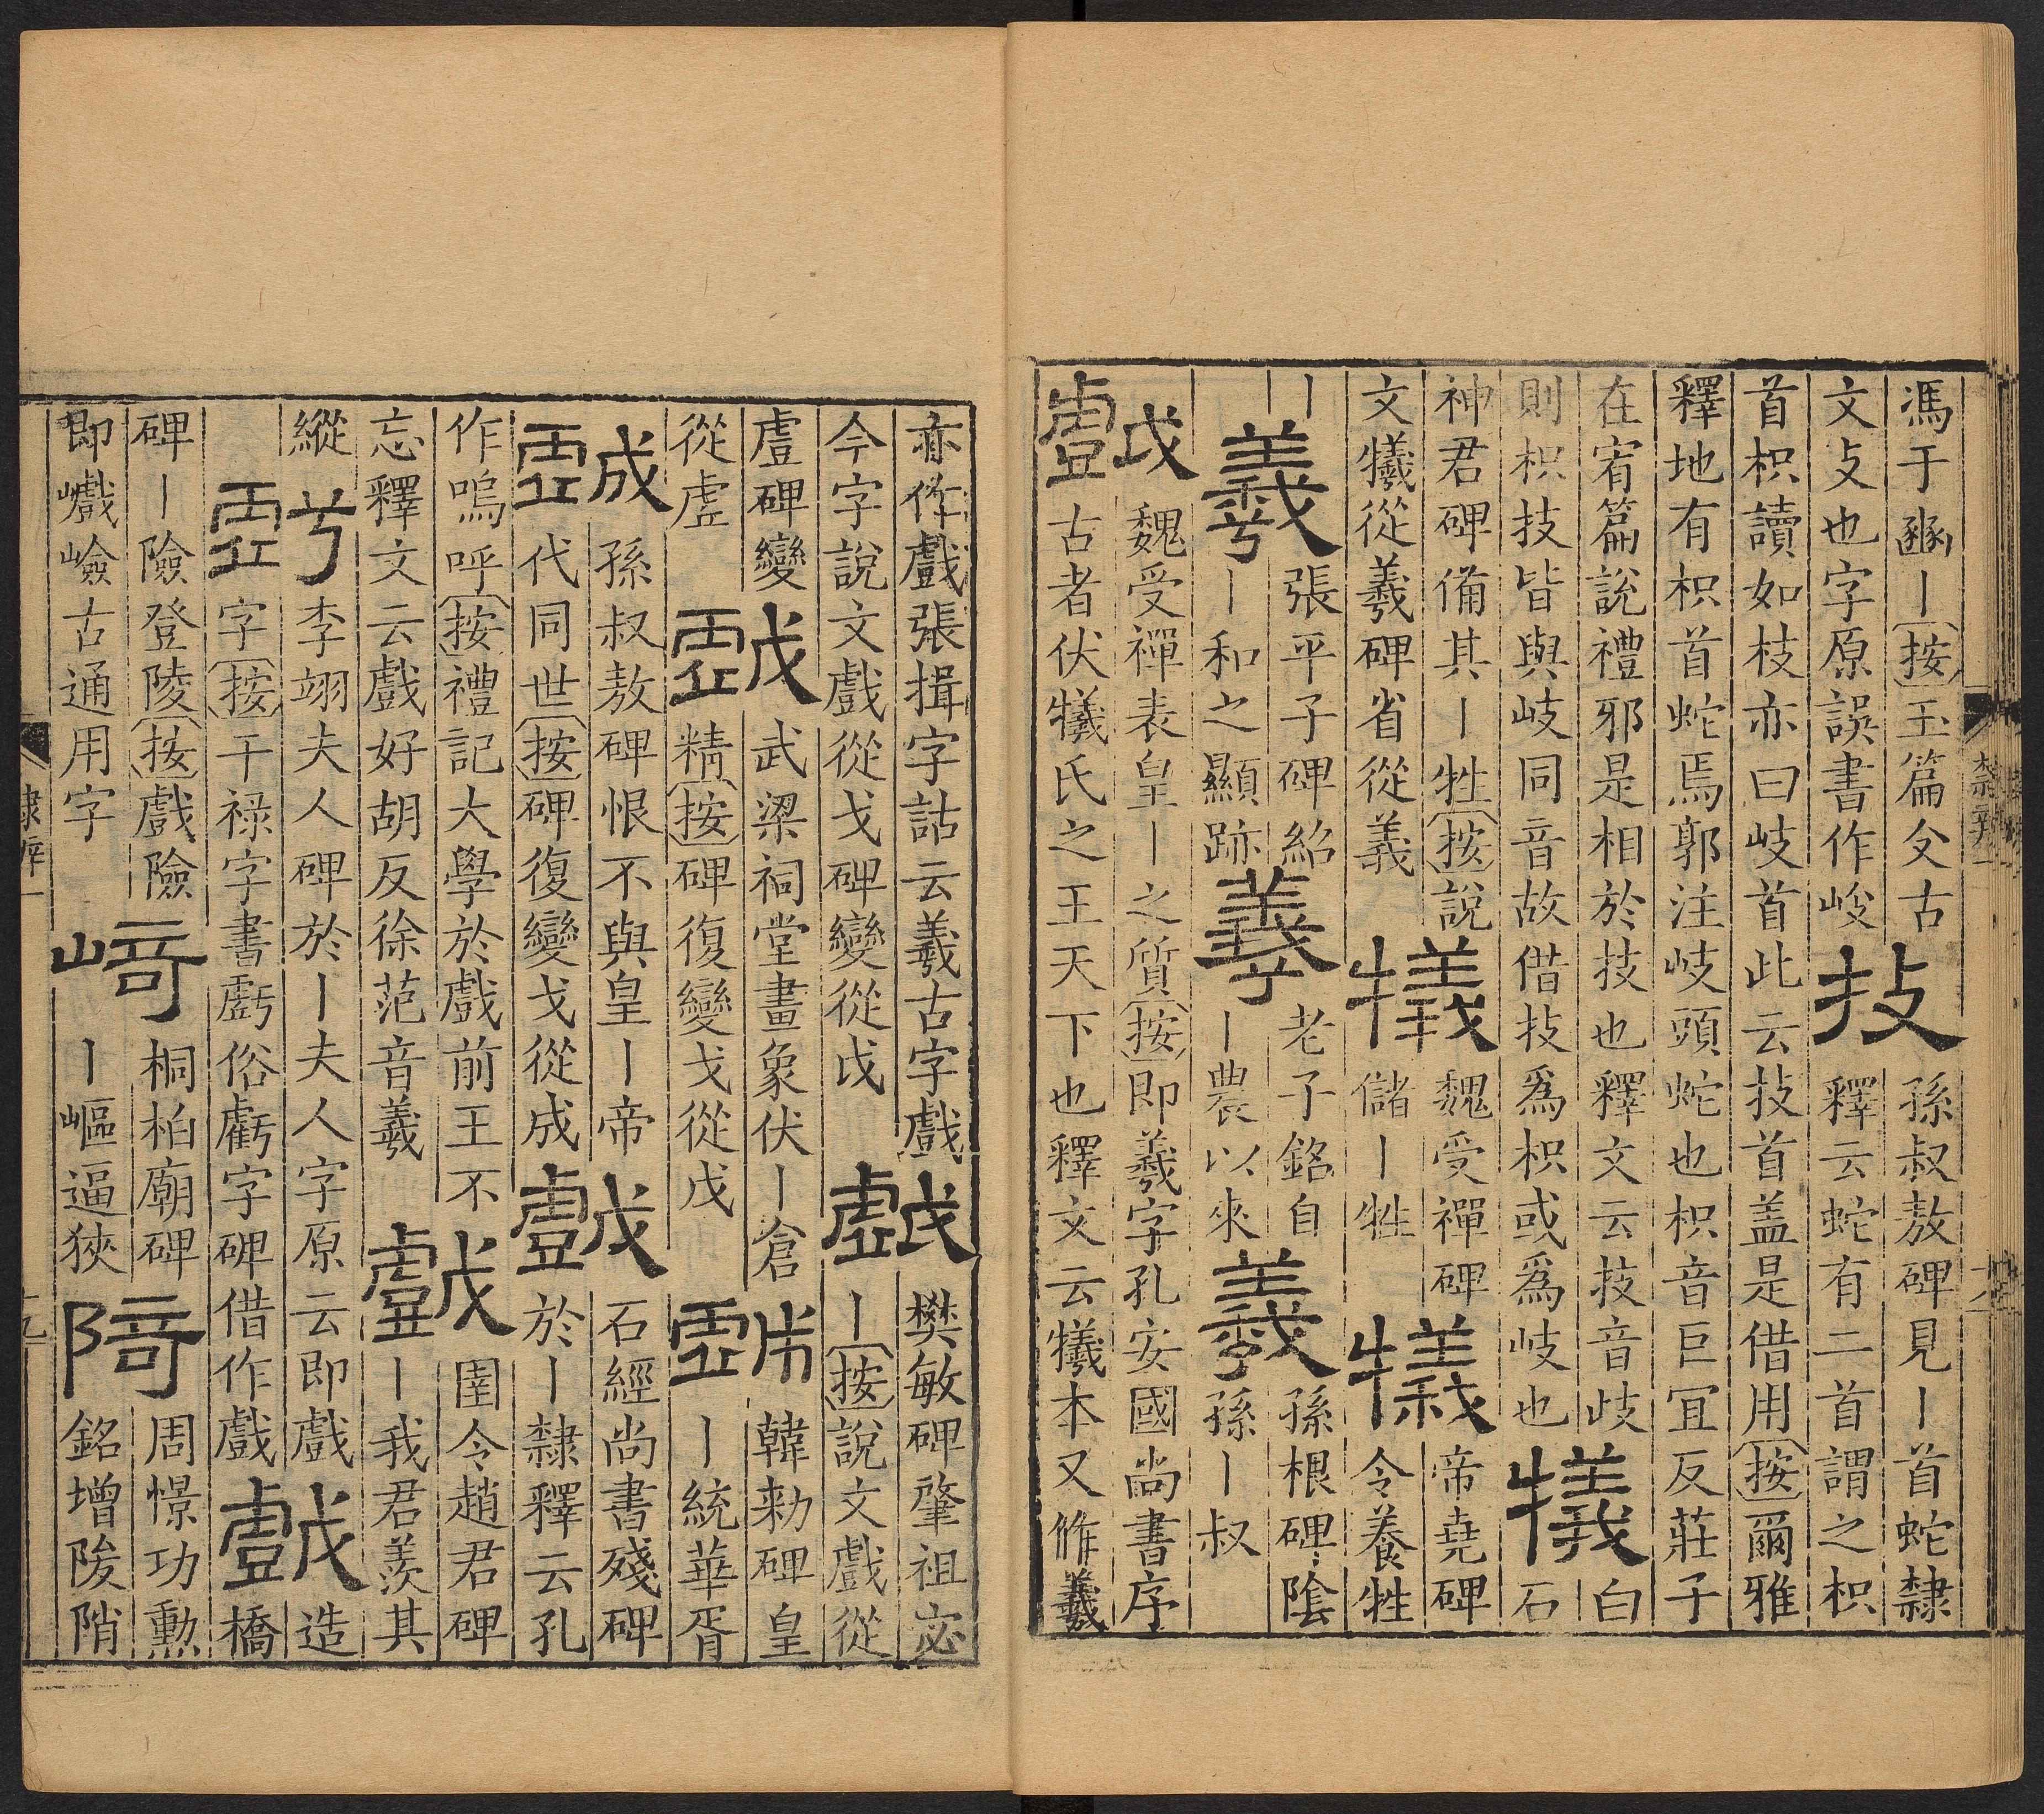 馮于豳丨按玉篇攴古
文攴也字原誤書作峻
技
孫叔敖碑見丨首蛇隸
釋云蛇有二首謂之枳
首枳讀如枝亦曰岐首此云技首盖是借用按爾雅
釋地有枳首蛇焉郭注岐頭蛇也枳音巨宜反莊子
在宥篇說禮邪是相於技也釋文云技音岐
則枳技皆與岐同音故借技爲枳或爲岐也
犧
白
石
神君碑備其丨牲按說
文犧從羲碑省從義
犧
魏受禪碑
儲丨牲
犧
帝堯碑
令養牲
丨
羲
張平子碑紹
丨和之顯跡
羲
老子銘自
丨農以來
羲
孫根碑陰
孫丨叔
戲
魏受禪表皇丨之質按即羲字孔安國尚書序
古者伏犧氏之王天下也釋文云犧本又作羲
亦作戲張揖字詁云羲古字戲
今字說文戲從戈碑變從戉
戲
樊敏碑肇祖宓
丨按說文戲從
䖒碑變
從虗
戲
武梁祠堂畫象伏丨倉
精按碑復變戈從戊
戲
韓勑碑皇
丨統華胥
戲
孫叔敖碑恨不與皇丨帝
代同世按碑復變戈從成
戲
石經尚書殘碑
於丨隸釋云孔
作嗚呼按禮記大學於戲前王不
忘釋文云戲好胡反徐范音羲
戲
圉令趙君碑
丨我君羨其
縱
虧
李翊夫人碑於丨夫人字原云即戲
字按干祿字書虧俗虧字碑借作戲
戲
造
橋
碑丨險登陵按戲險
即巇嶮古通用字
崎
桐柏廟碑
丨嶇逼狹
陭
周憬功勳
銘增陖陗
隸辨一